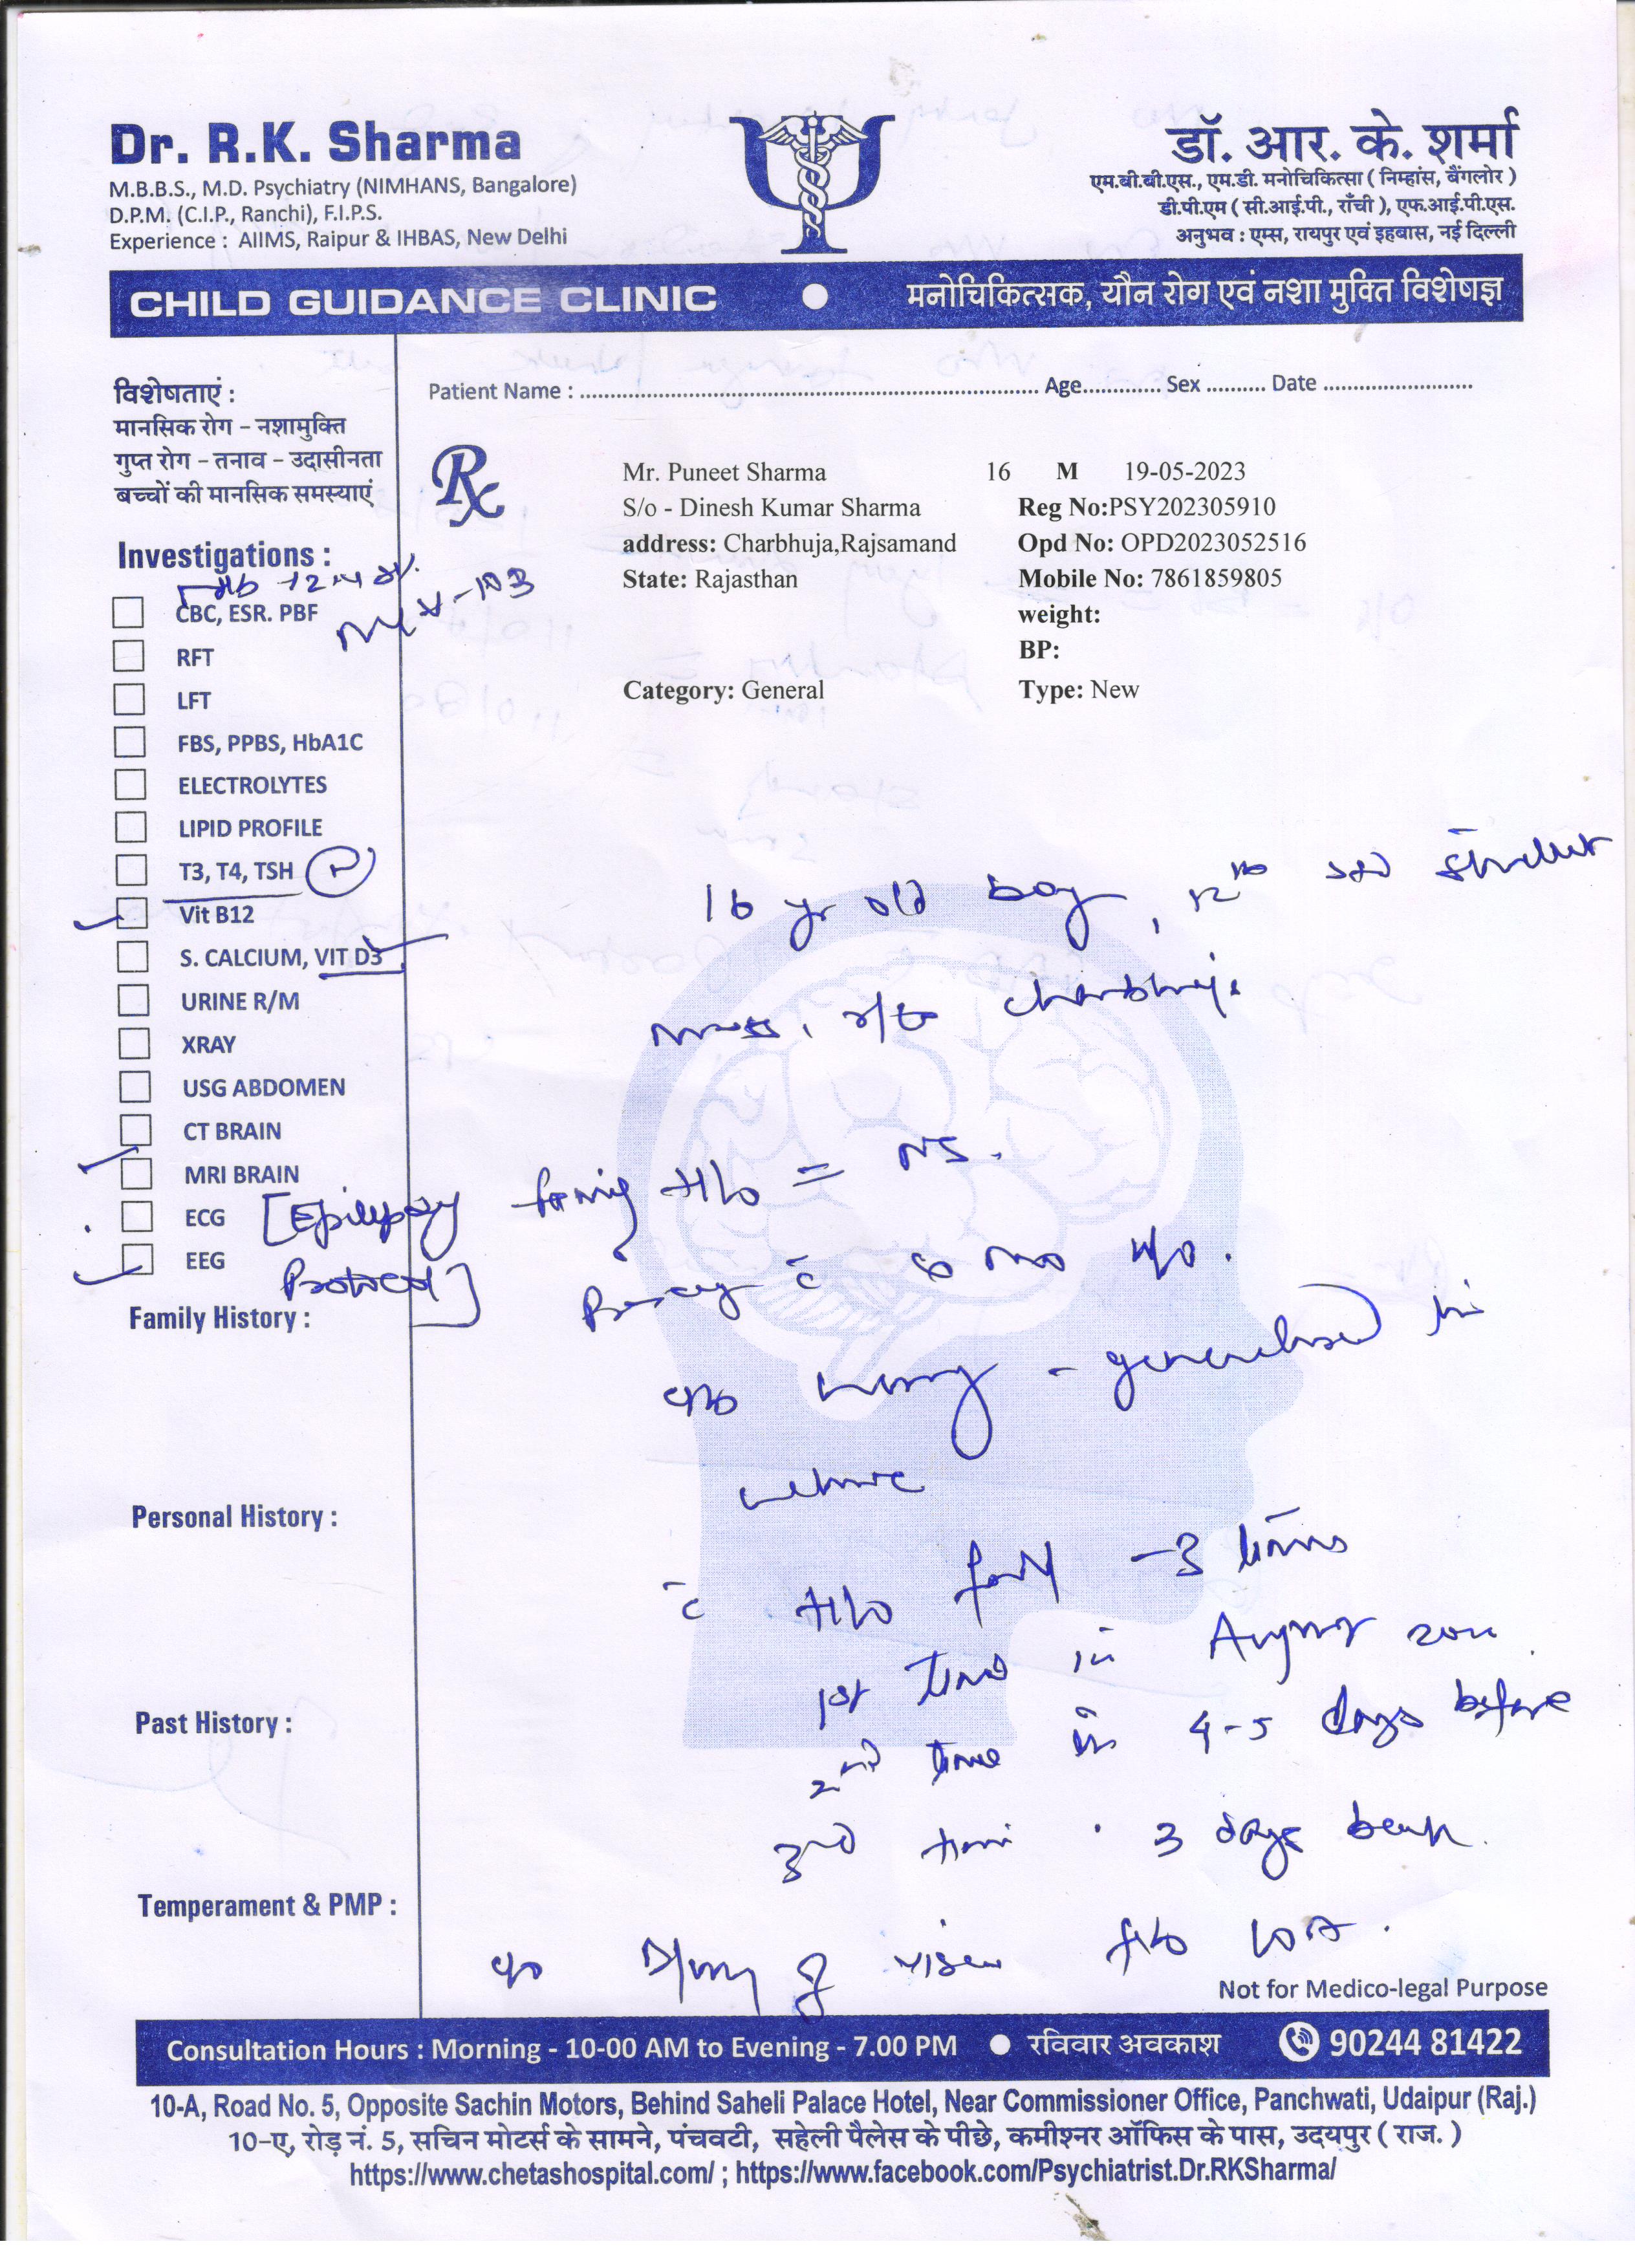 Dr. R.K. Sharma
M.B.B.S., M.D. Psychiatry (NIMHANS, Bangalore)
D.P.M. (C.I.P., Ranchi), F.I.P.S.
Experience : AIIMS, Raipur & IHBAS, New Delhi
डॉ. आर. के. शर्मा
एम.बी.बी.एस., एम.डी. मनोचिकित्सा ( निम्हांस, बैंगलोर )
डी.पी.एम ( सी.आई.पी., राँची ), एफ.आई.पी.एस.
अनुभव : एम्स, रायपुर एवं इहबास, नई दिल्ली
CHILD GUIDANCE CLINIC ● मनोचिकित्सक, यौन रोग एवं नशा मुक्ति विशेषज्ञ
विशेषताएं :
मानसिक रोग – नशामुक्ति
गुप्त रोग – तनाव – उदासीनता
बच्चों की मानसिक समस्याएं
Patient Name : Age Sex Date
Rx
Mr. Puneet Sharma 16 M 19-05-2023
S/o - Dinesh Kumar Sharma Reg No:PSY202305910
address: Charbhuja,Rajsamand Opd No: OPD2023052516
State: Rajasthan Mobile No: 7861859805
weight:
BP:
Category: General Type: New
Investigations :
Hb 12.4
CBC, ESR. PBF
RFT
LFT
FBS, PPBS, HbA1C
ELECTROLYTES
LIPID PROFILE
T3, T4, TSH
Vit B12
S. CALCIUM, VIT D3
URINE R/M
XRAY
USG ABDOMEN
CT BRAIN
MRI BRAIN
ECG [Epilepsy
EEG Protocol]
Family History :
Personal History :
Past History :
Temperament & PMP :
16 yr old boy, 12th std student
r/o Charbhuja
family H/o = NS.
c/o - generalised
H/o fall - 3 times
1st time in August
2nd time in 4-5 days before
3rd time 3 days back
c/o of vision H/o
Not for Medico-legal Purpose
Consultation Hours : Morning - 10-00 AM to Evening - 7.00 PM ● रविवार अवकाश 90244 81422
10-A, Road No. 5, Opposite Sachin Motors, Behind Saheli Palace Hotel, Near Commissioner Office, Panchwati, Udaipur (Raj.)
10-ए, रोड़ नं. 5, सचिन मोटर्स के सामने, पंचवटी, सहेली पैलेस के पीछे, कमीश्नर ऑफिस के पास, उदयपुर ( राज. )
https://www.chetashospital.com/ ; https://www.facebook.com/Psychiatrist.Dr.RKSharma/